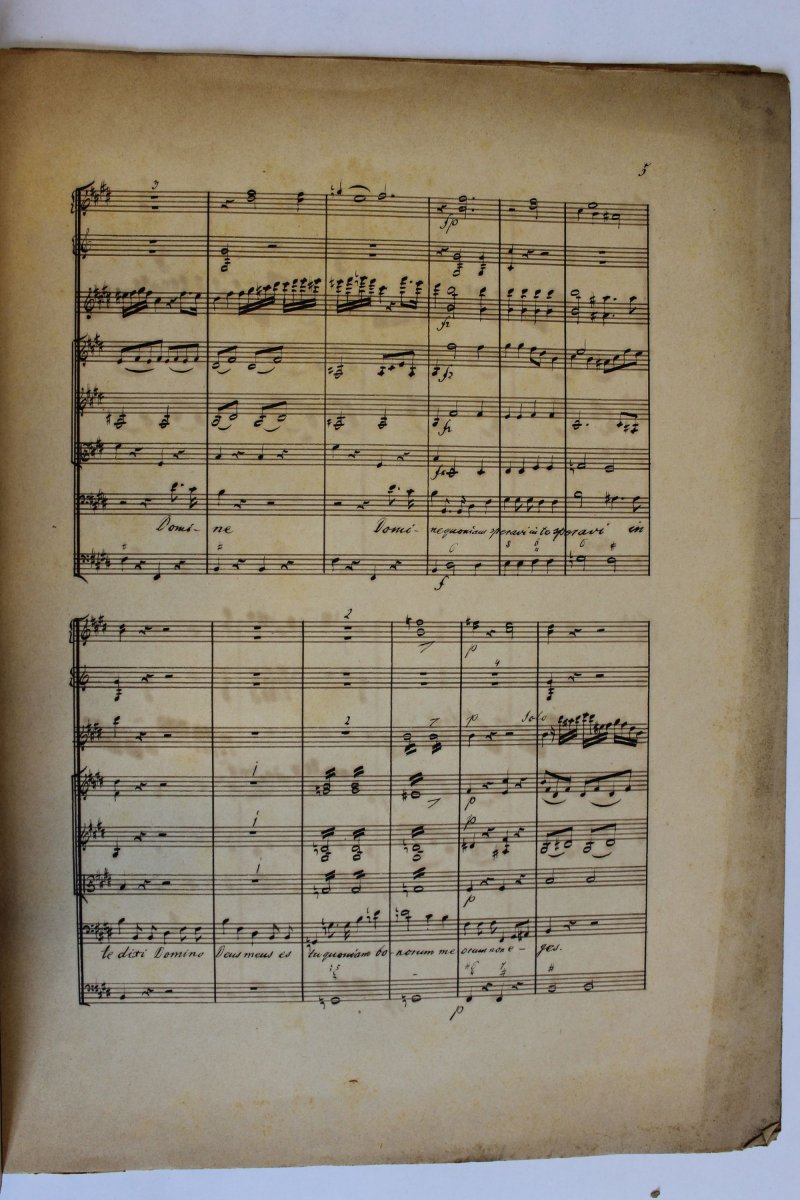 5
3
fp
fr
fr
fr
Domi- ne Domi- ne quoniam speravi in te speravi in
6 8 6 #
f
2
p
4
2 p Solo
i
p
i p
i
p
te dixi Domino Deus meus es tu quoniam bo-norum meorum non e- ges.
p